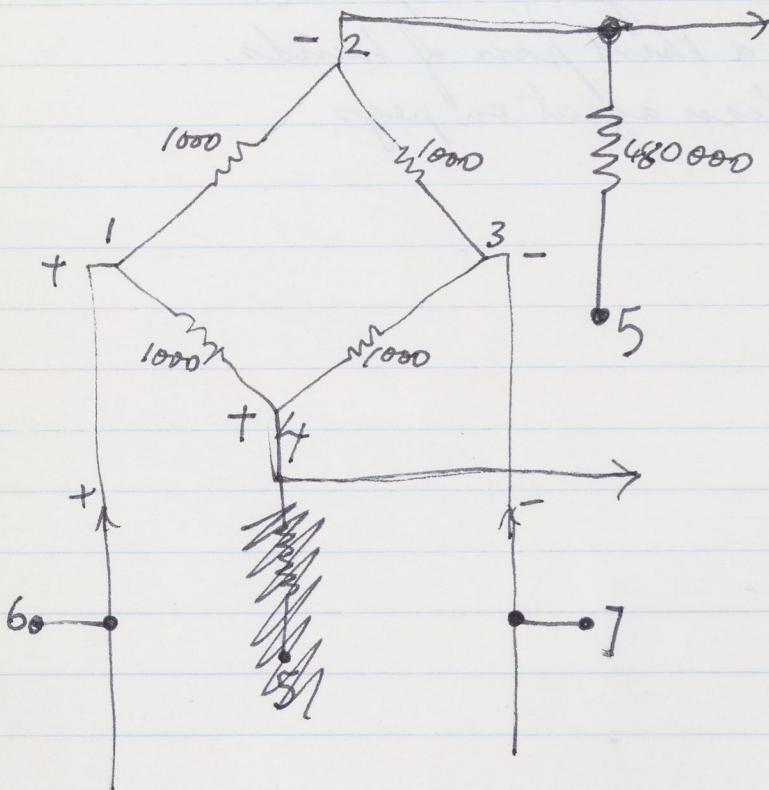 - 2
1000
1000
480000
1
+
3
-
5
1000
1000
+ 4
+
-
6
7
5